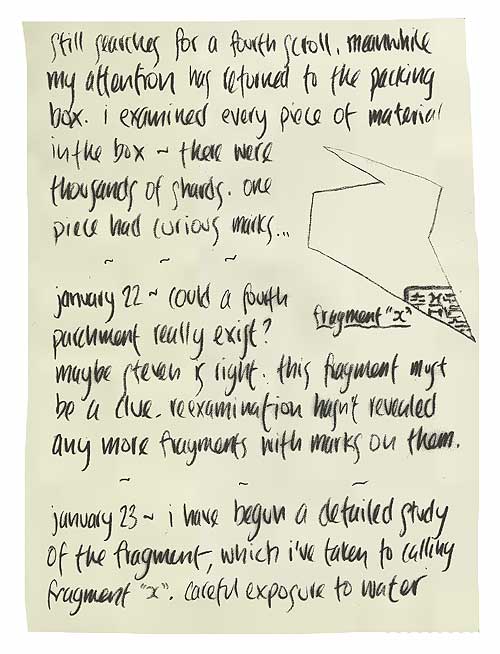 still searches for a fourth scroll. meanwhile
my attention has returned to the packing
box. i examined every piece of material
in the box ~ there were
thousands of shards. one
piece had curious marks...
~ ~ ~
january 22 ~ could a fourth
parchment really exist?
fragment "x"
maybe steven is right. this fragment must
be a clue. reexamination hasn't revealed
any more fragments with marks on them.
~ ~ ~
january 23 ~ i have begun a detailed study
of the fragment, which i've taken to calling
fragment "x". careful exposure to water